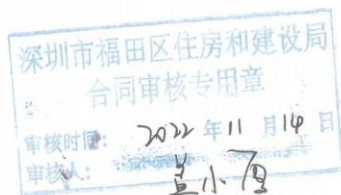 深圳市福田区住房和建设局
合同审核专用章
审核时间： 2022 年 11 月 14 日
审核人：
小